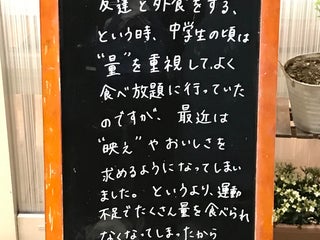 友達と外食をする、
という時、中学生の頃は
“量”を重視して、よく
食べ放題に行っていた
のですが、最近は
“映え”やおいしさを
求めるようになってしまい
ました。というより、運動
不足でたくさん量を食べられ
なくなってしまったから